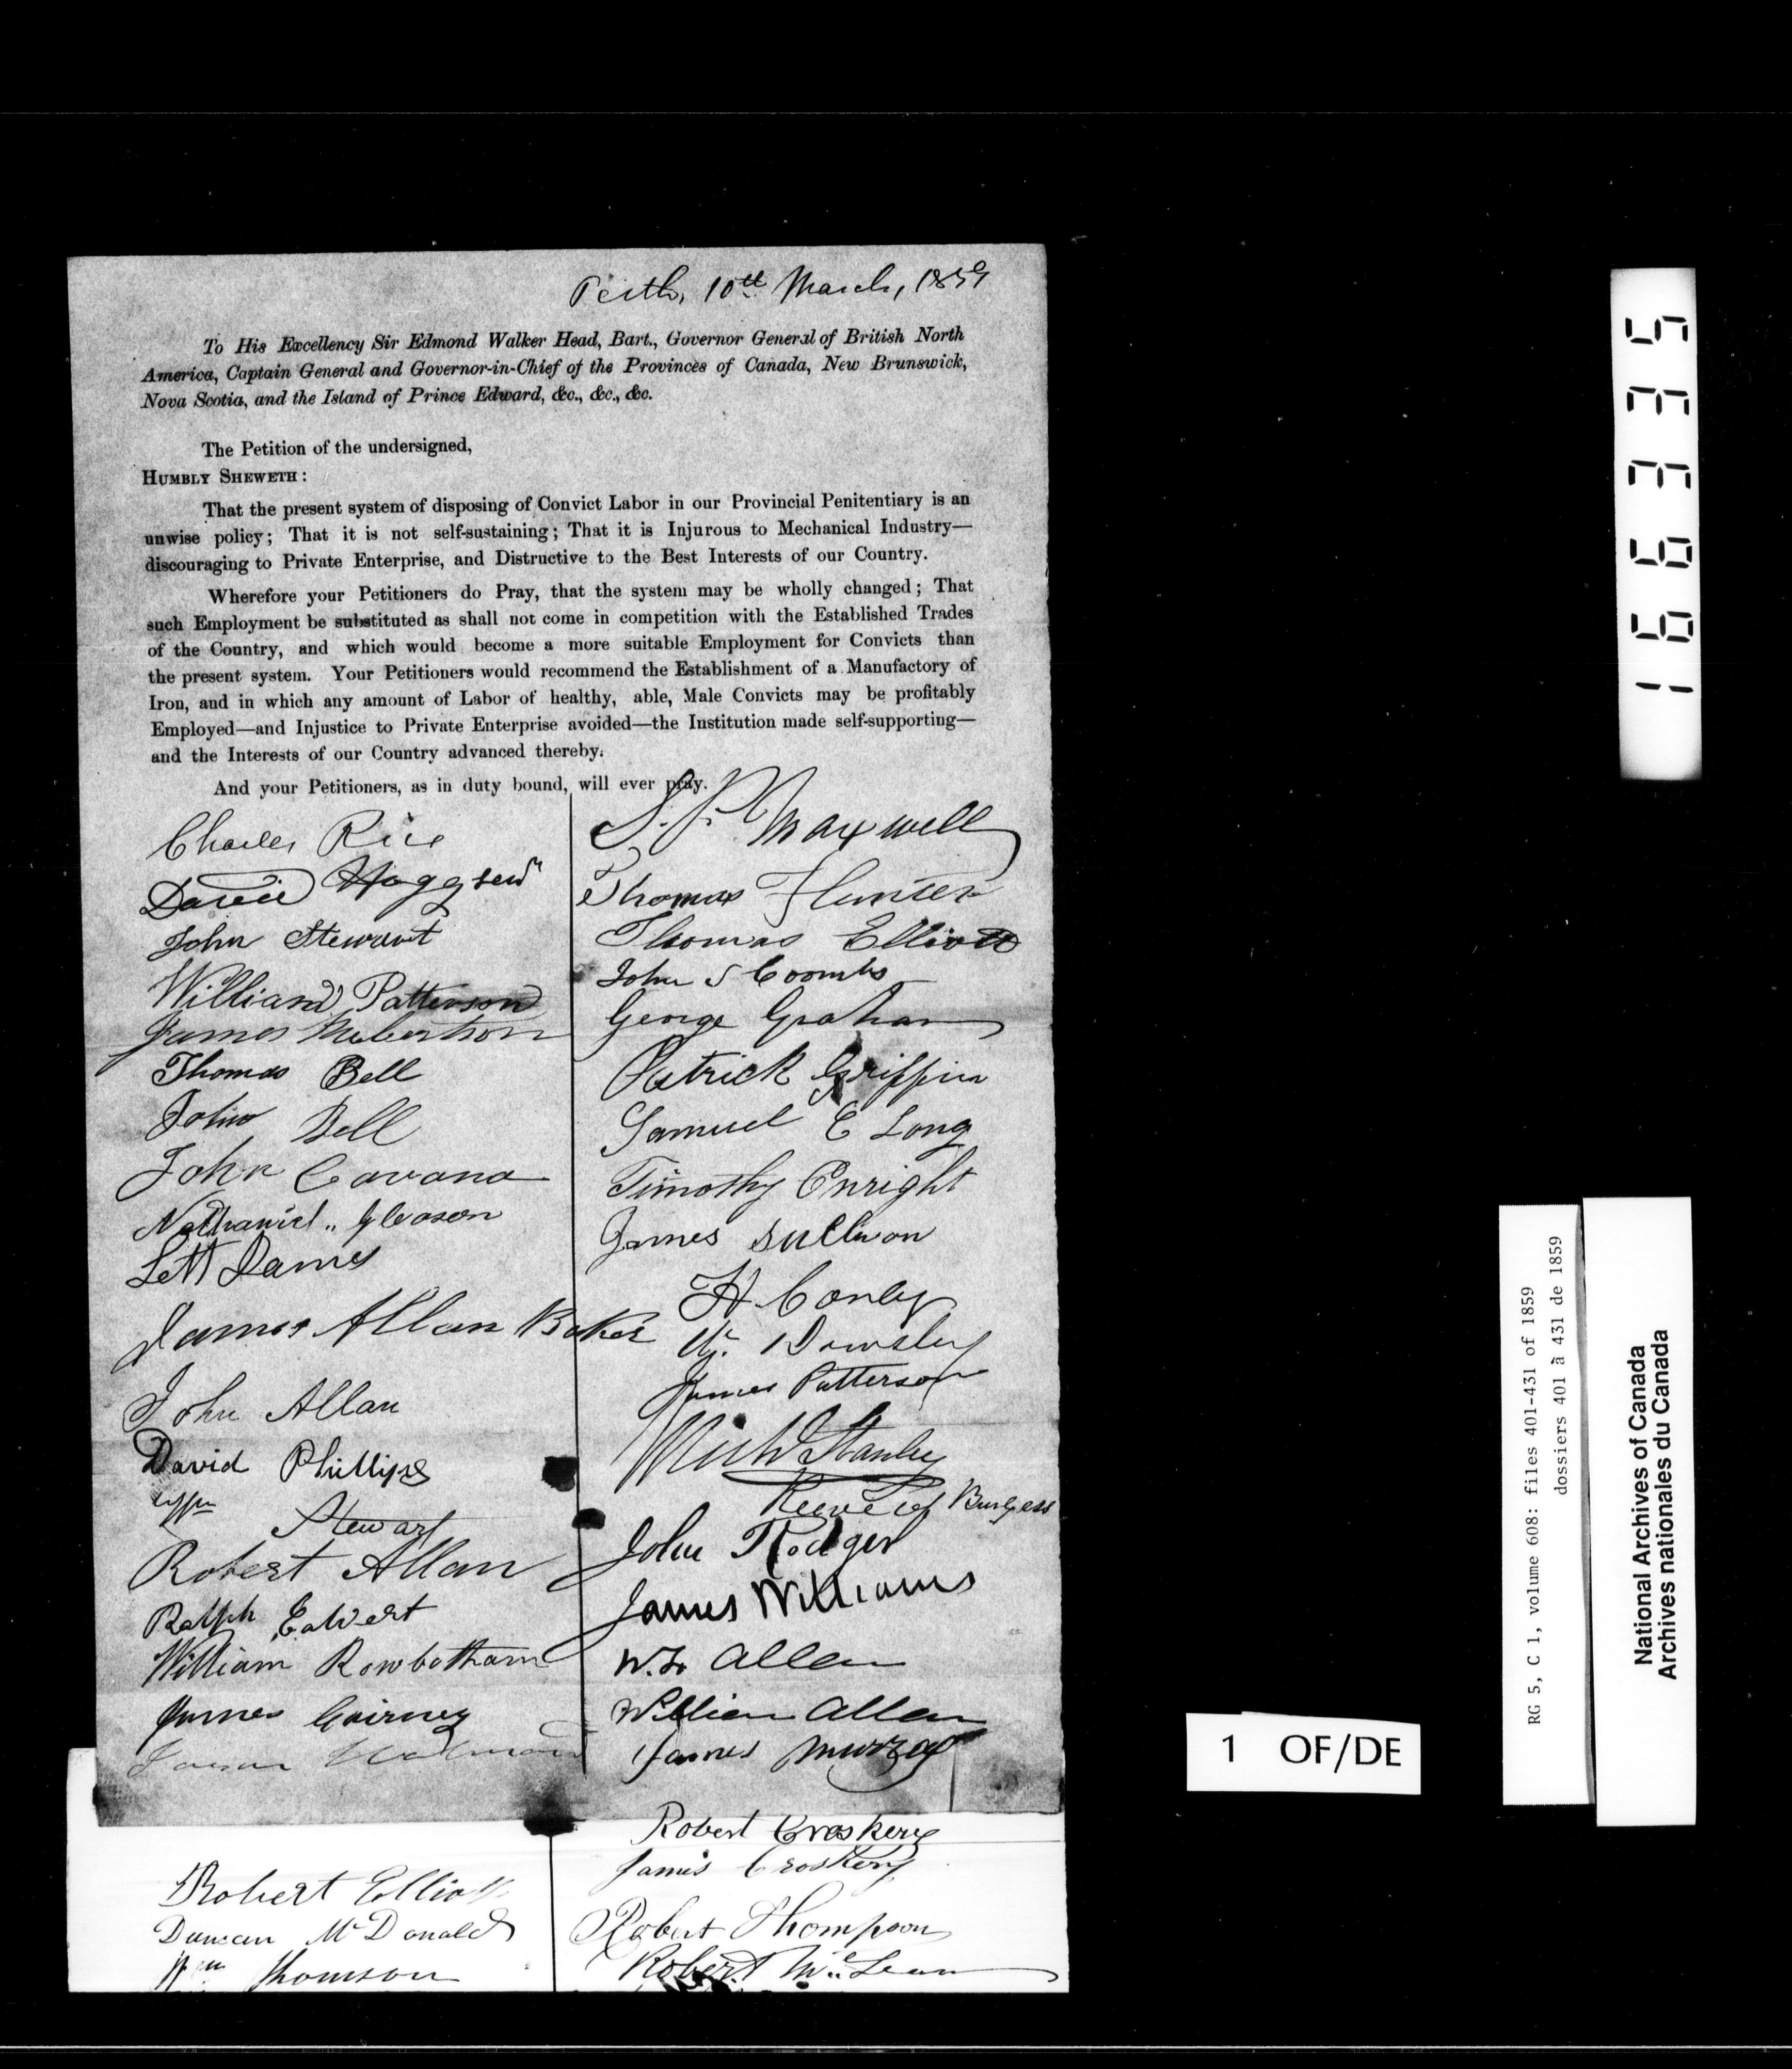 Perth, 10th March, 1859
To His Excellency Sir Edmond Walker Head, Bart., Governor General of British North
America, Captain General and Governor-in-Chief of the Provinces of Canada, New Brunswick,
Nova Scotia, and the Island of Prince Edward, &c., &c., &c.
The Petition of the undersigned,
HUMBLY SHEWETH:
That the present system of disposing of Convict Labor in our Provincial Penitentiary is an
unwise policy; That it is not self-sustaining; That it is Injurous to Mechanical Industry—
discouraging to Private Enterprise, and Distructive to the Best Interests of our Country.
Wherefore your Petitioners do Pray, that the system may be wholly changed; That
such Employment be substituted as shall not come in competition with the Established Trades
of the Country, and which would become a more suitable Employment for Convicts than
the present system. Your Petitioners would recommend the Establishment of a Manufactory of
Iron, and in which any amount of Labor of healthy, able, Male Convicts may be profitably
Employed—and Injustice to Private Enterprise avoided—the Institution made self-supporting—
and the Interests of our Country advanced thereby.
And your Petitioners, as in duty bound, will ever pray.
Charles Rice
David
John Stewart
William Patterson
James Robertson
Thomas Bell
John Bell
John Cavana
Nathaniel Gleason
Lett James
James Allan Baker
John Allan
David Phillips
Wm Stewart
Robert Allan
Ralph Calvert
William Rowbotham
James Cairney
Robert Elliott
Duncan McDonald
Wm Thomson
S. P. Maxwell
Thomas Hunter
Thomas Elliott
John S Coombs
George Graham
Patrick Griffin
Samuel E Long
Timothy Enright
James Sullivan
H Conley
W. Dowsley
James Patterson
Mich Stanley
Reeve of Burgess
John Rodger
James Williams
Allan
William Allan
James Murray
Robert Croskery
James Croskery
Robert Thompson
Robert McLean
166335
RG 5, C 1, volume 608: files 401-431 of 1859
dossiers 401 à 431 de 1859
National Archives of Canada
Archives nationales du Canada
1 OF/DE